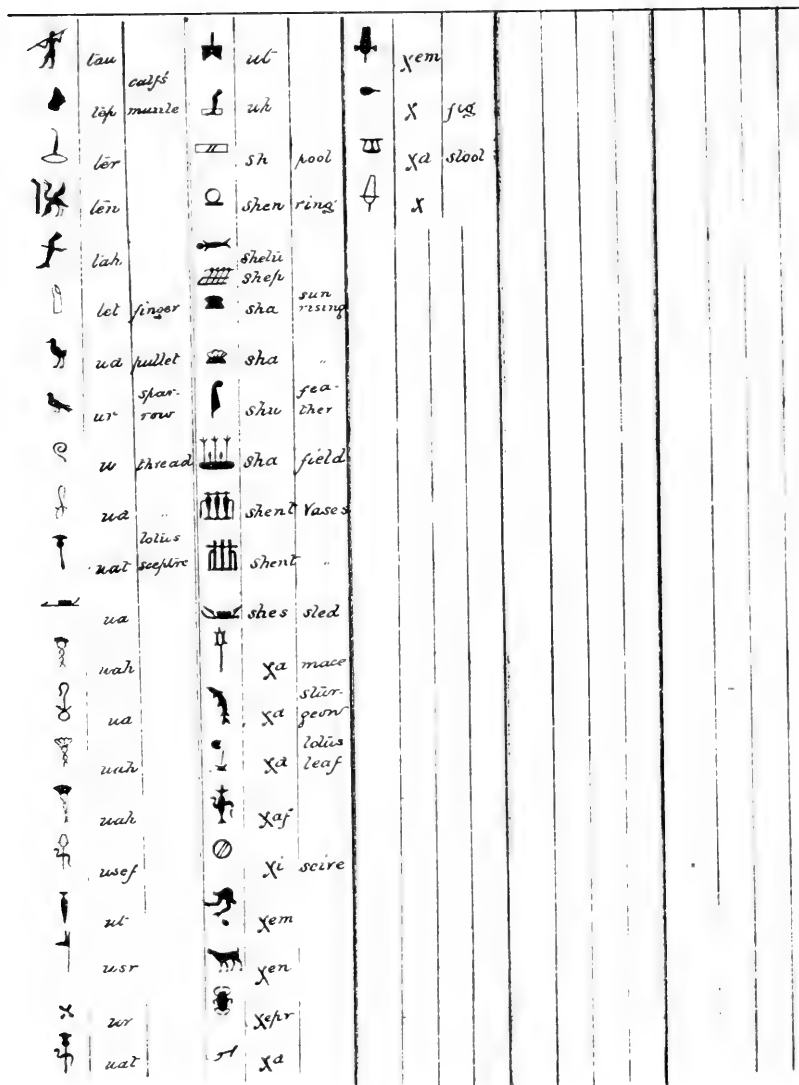 tau
calf's
tep muzzle
ter
ten
tah
tet finger
ua pullet
spar-
ur row
u thread
ua "
lotus
uat sceptre
ua
uah
ua
uah
uah
usef
ut
usr
ur
uat
ut
uk
sh pool
shen ring
shetu
shep
sun
sha rising
sha "
fea-
shu ther
sha field
shent Vases
shent "
shes sled
χa mace
stur-
χa geon
lotus
χa leaf
χaf
χi scire
χem
χen
χepr
χa
χem
χ fig
χa stool
χ